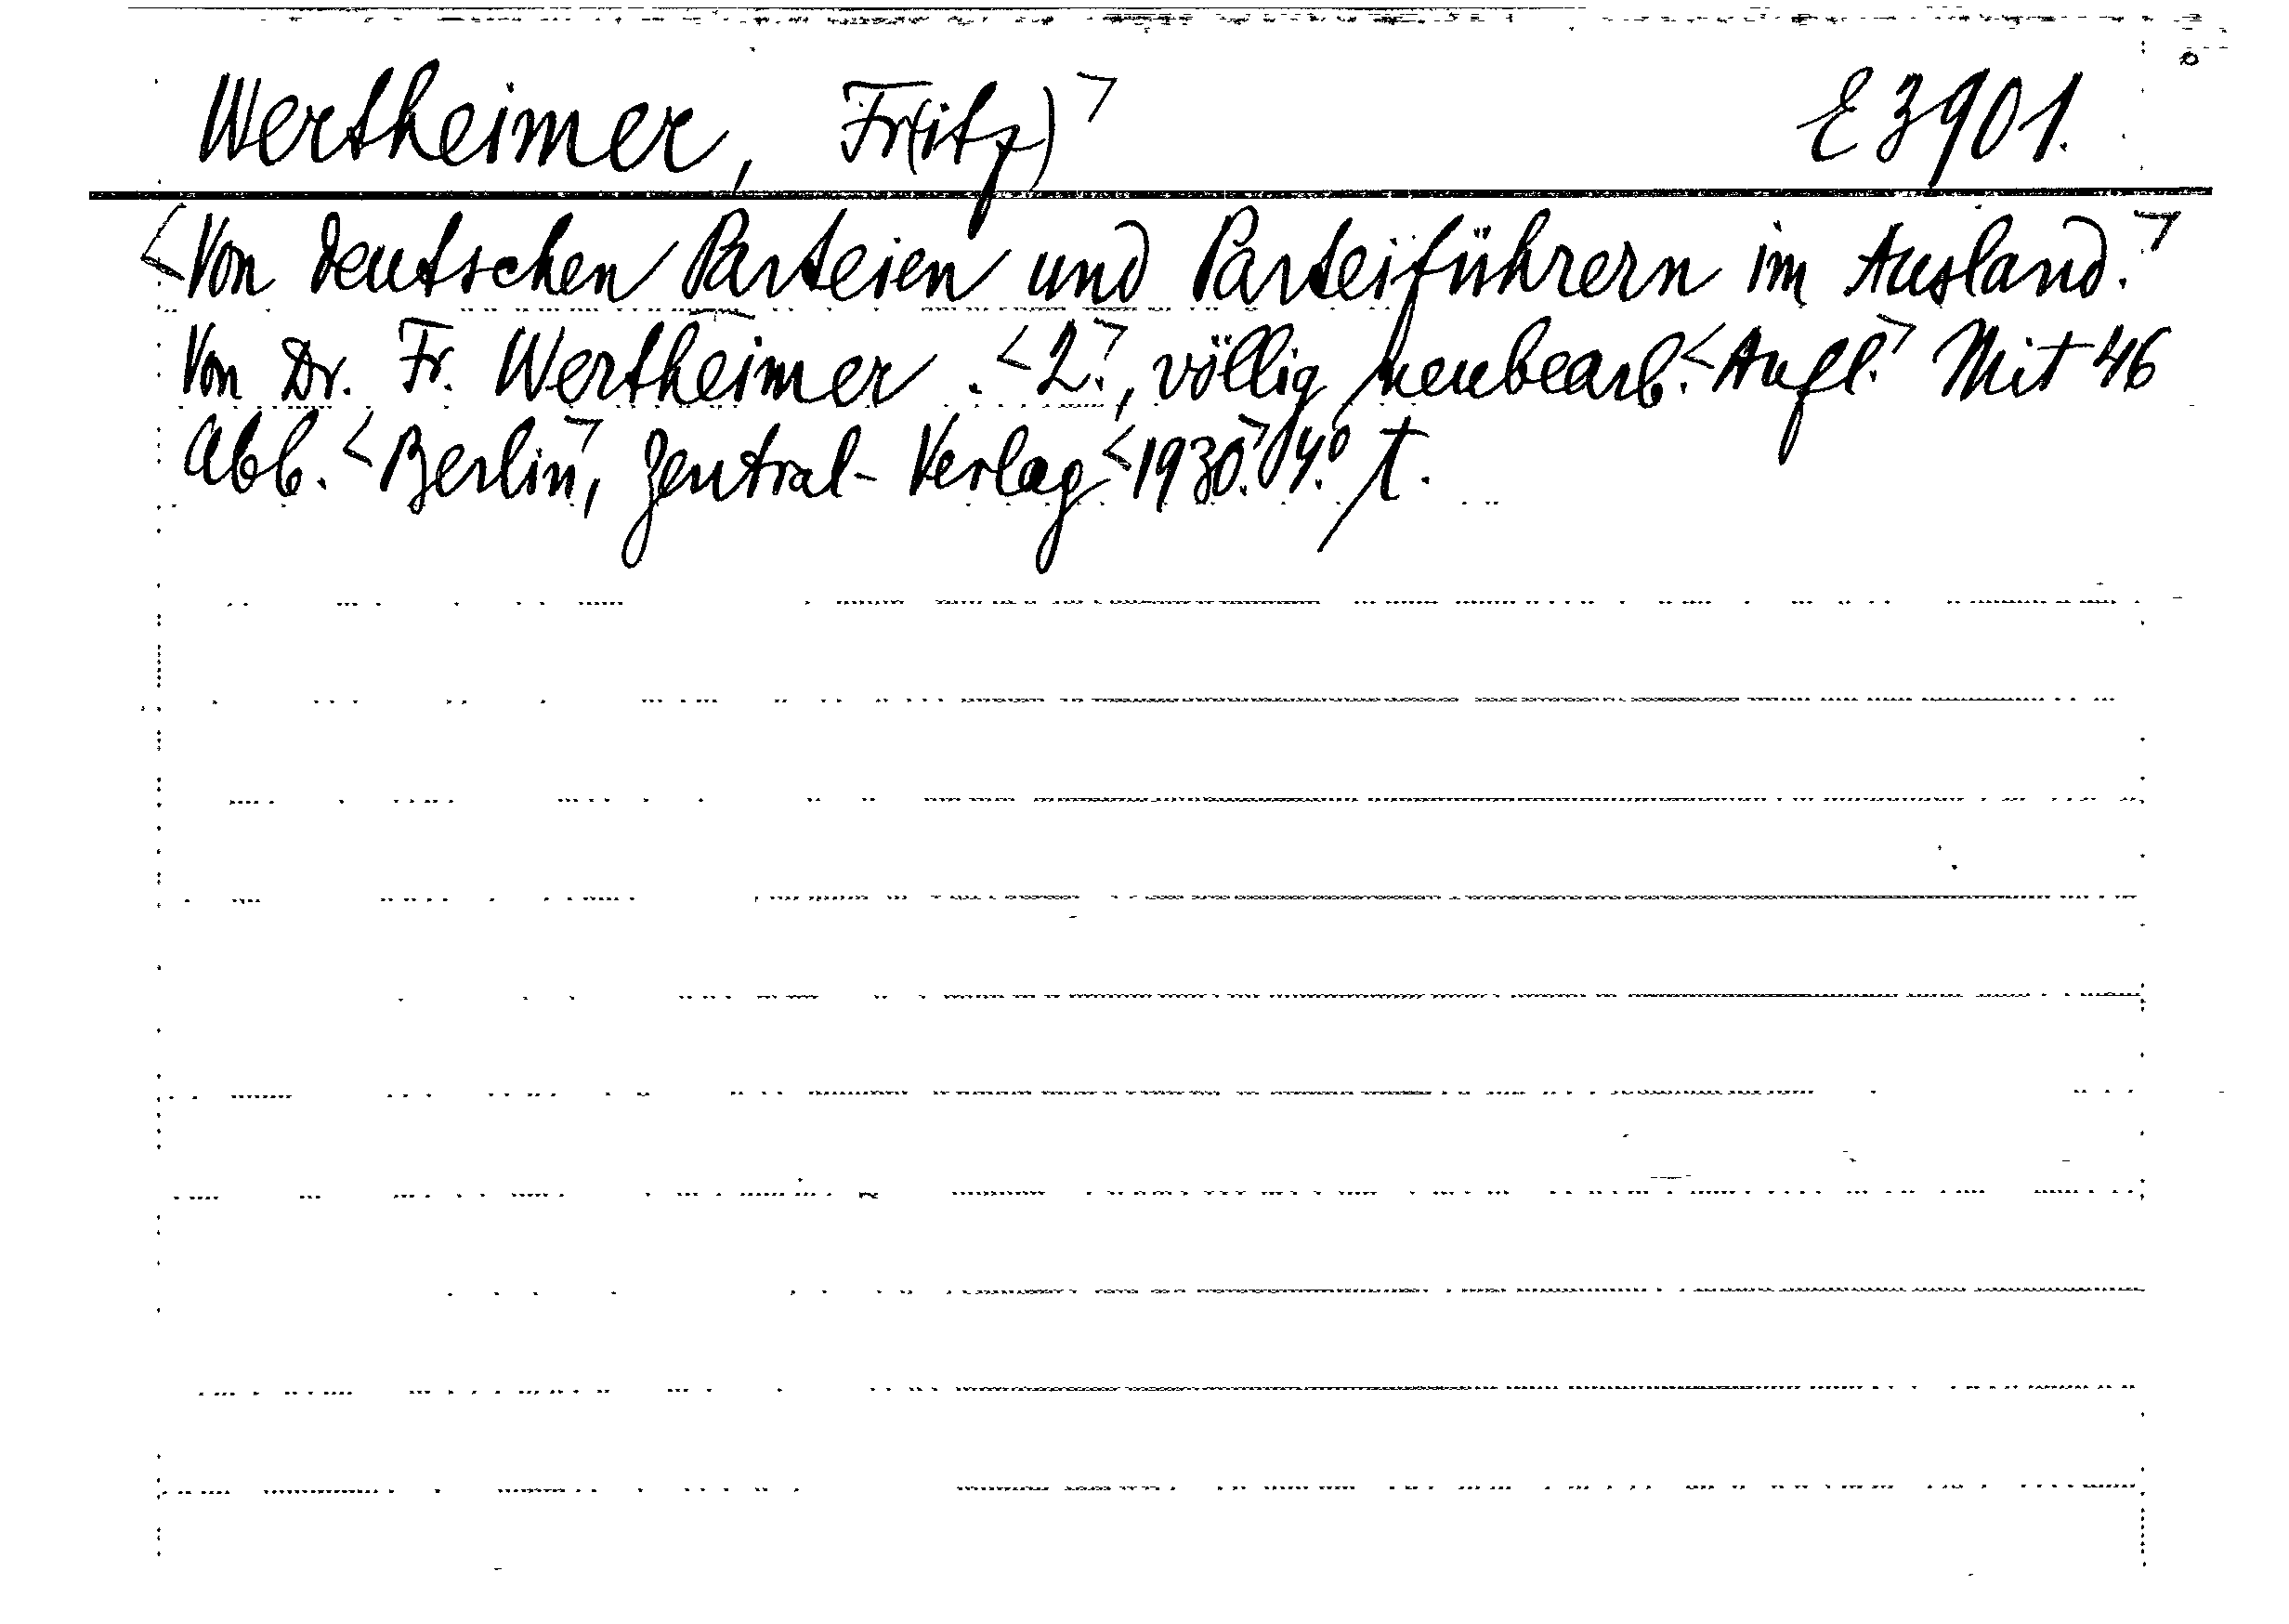 Wertheimer, Fr(itz)⌝ E 3901.
<Von deutschen Parteien und Parteiführern im Ausland.⌝
Von Dr. Fr. Wertheimer. <2.⌝, völlig neubearb. <Aufl.⌝ Mit 46
Abb. <Berlin⌝, Zentral-Verlag <1930.⌝ 4.° T.